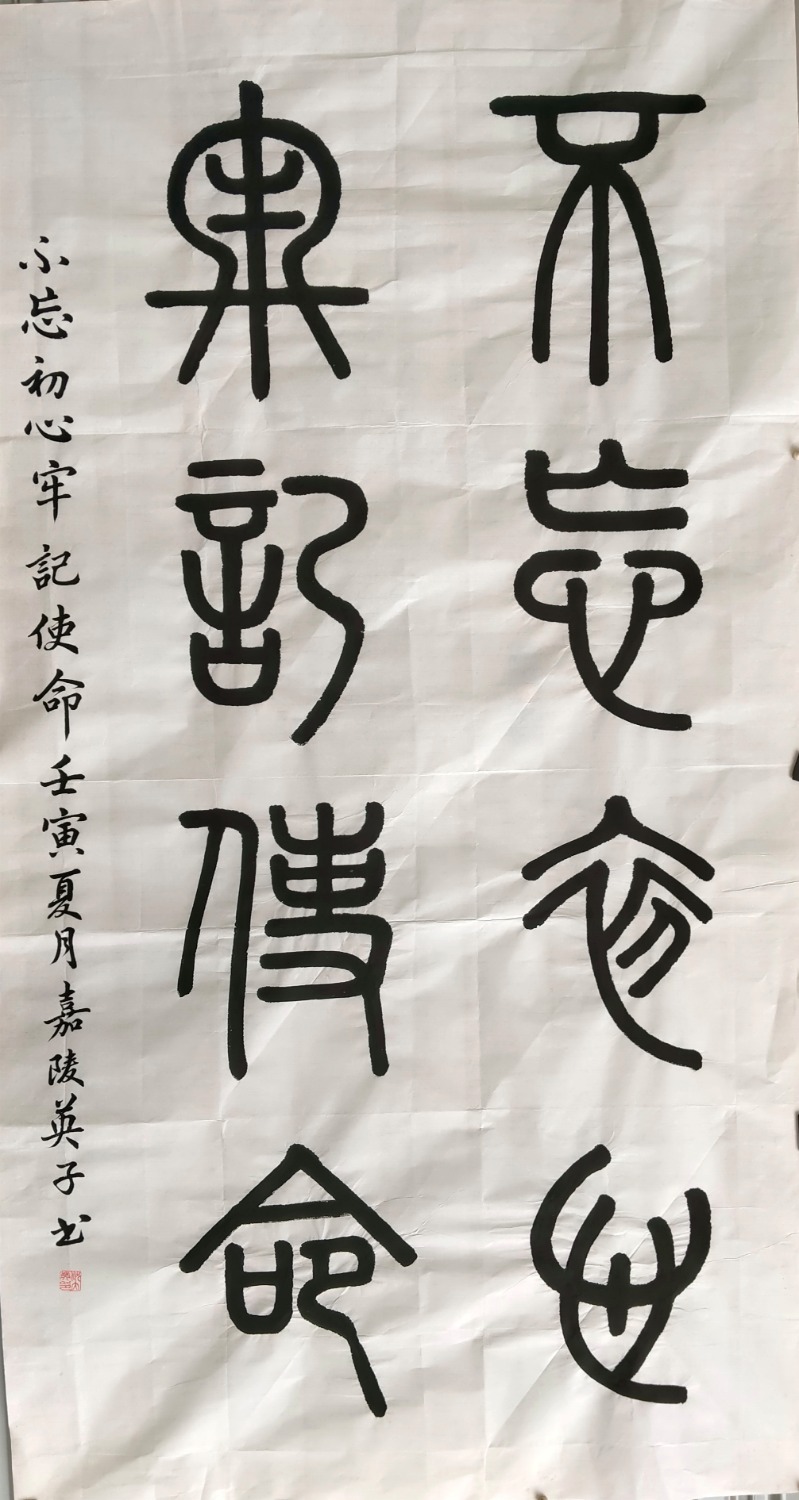 不忘初心
牢記使命
不忘初心牢記使命壬寅夏月嘉陵英子书